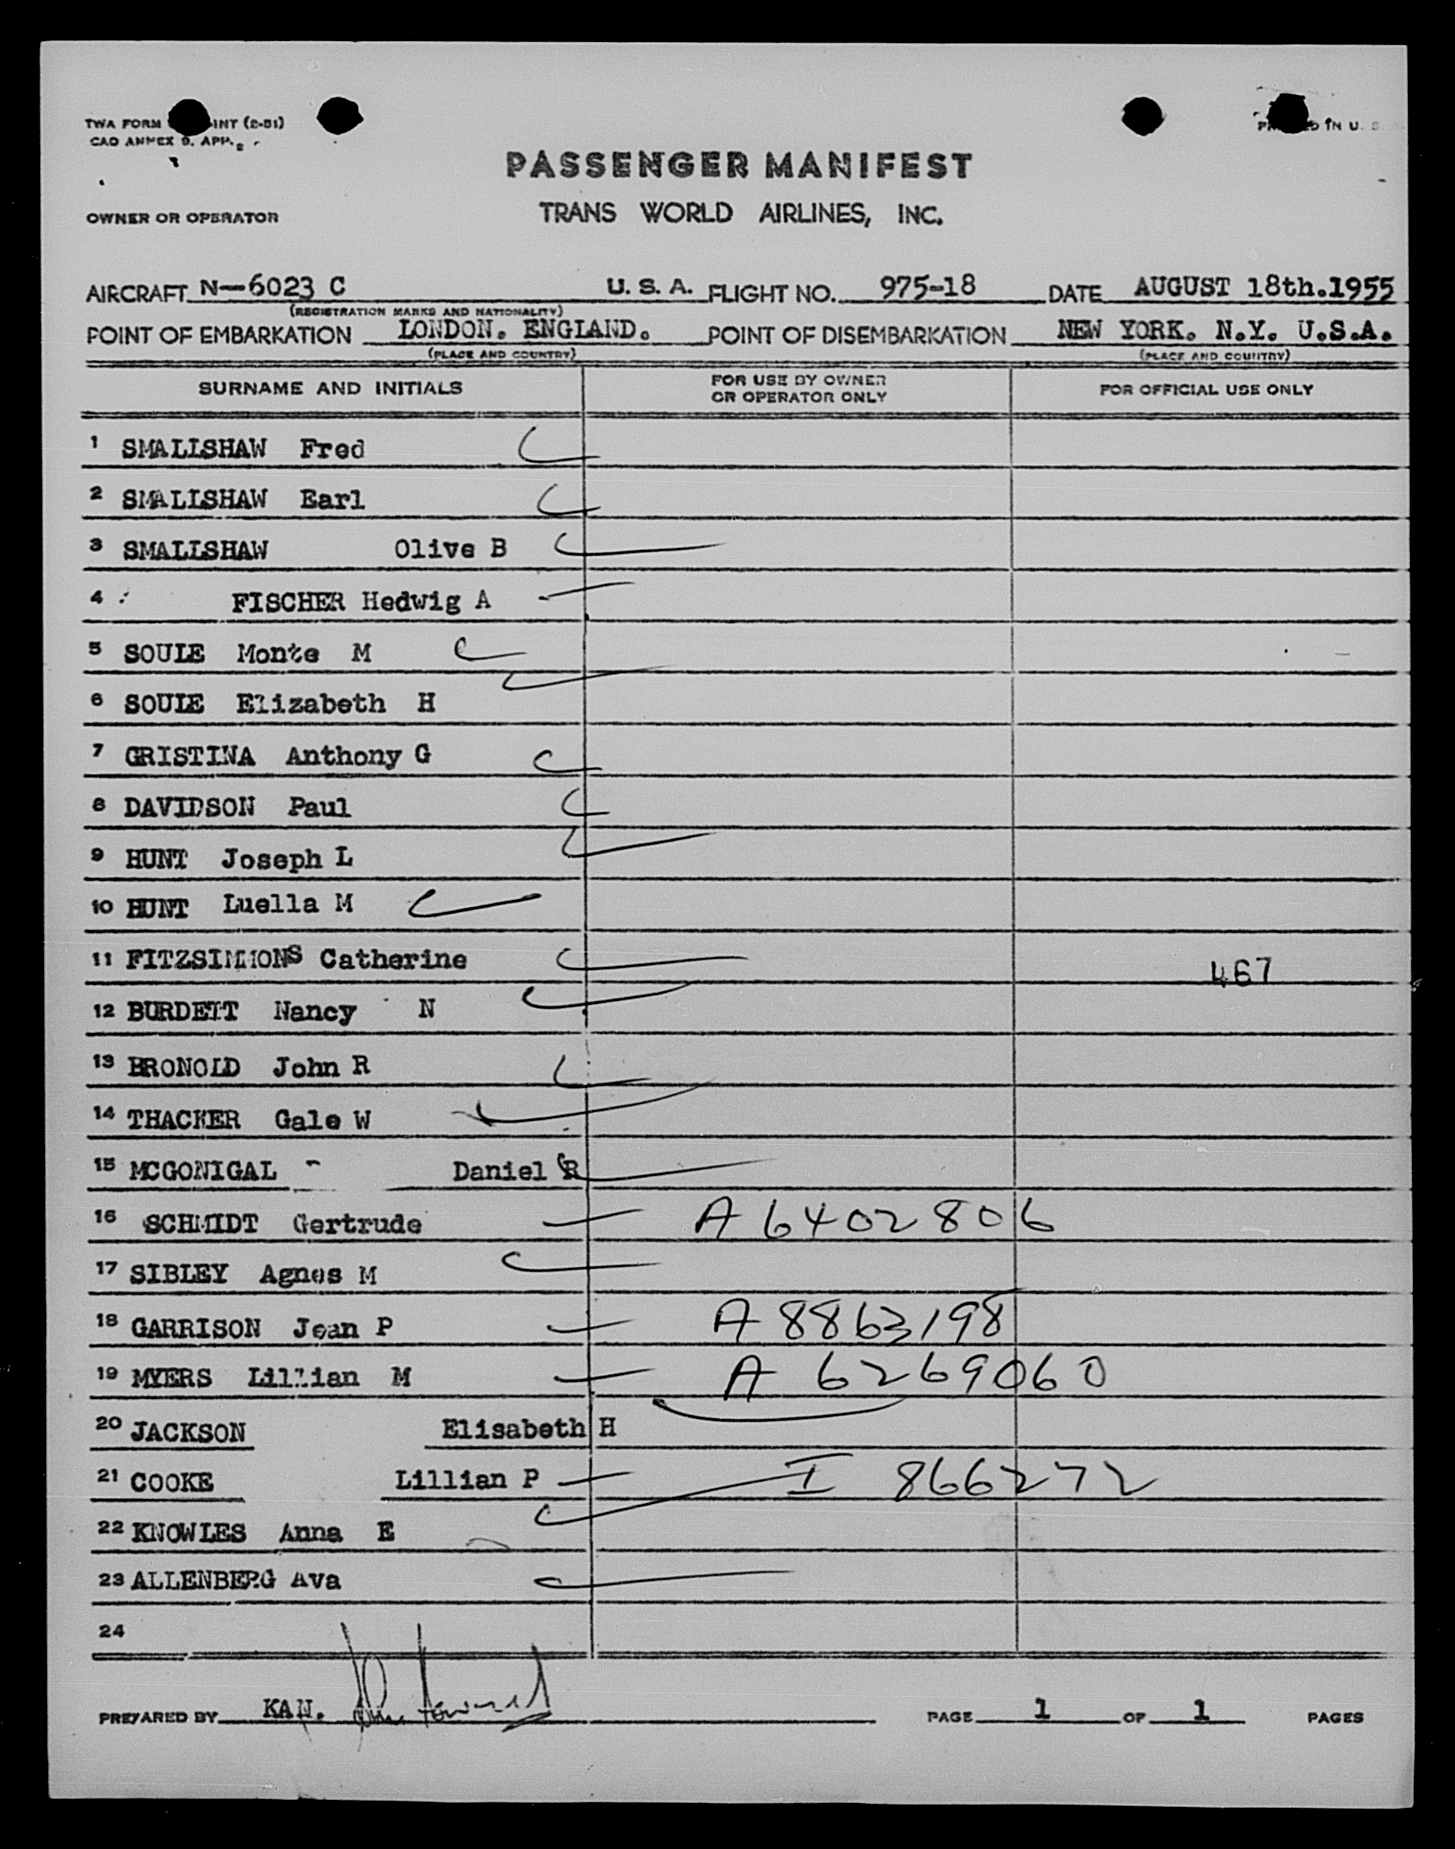 TWA FORM INT (2-51)
CAO ANNEX 9, APP.
PASSENGER MANIFEST
OWNER OR OPERATOR TRANS WORLD AIRLINES, INC.
AIRCRAFT N-6023 C U. S. A. FLIGHT NO. 975-18 DATE AUGUST 18th.1955
(REGISTRATION MARKS AND NATIONALITY)
POINT OF EMBARKATION LONDON. ENGLAND. POINT OF DISEMBARKATION NEW YORK. N.Y. U.S.A.
(PLACE AND COUNTRY) (PLACE AND COUNTRY)
SURNAME AND INITIALS FOR USE BY OWNER OR OPERATOR ONLY FOR OFFICIAL USE ONLY
1 SMALLSHAW Fred
2 SMALLSHAW Earl
3 SMALLSHAW Olive B
4 FISCHER Hedwig A
5 SOULE Monte M
6 SOULE Elizabeth H
7 GRISTINA Anthony G
8 DAVIDSON Paul
9 HUNT Joseph L
10 HUNT Luella M
11 FITZSIMMONS Catherine 467
12 BURDETT Nancy N
13 BRONOLD John R
14 THACKER Gale W
15 MCGONIGAL Daniel R
16 SCHMIDT Gertrude A 6402806
17 SIBLEY Agnes M
18 GARRISON Jean P A 8863198
19 MYERS Lillian M A 6269060
20 JACKSON Elisabeth H
21 COOKE Lillian P I 866272
22 KNOWLES Anna E
23 ALLENBERG Ava
24
PREPARED BY KAN. PAGE 1 OF 1 PAGES